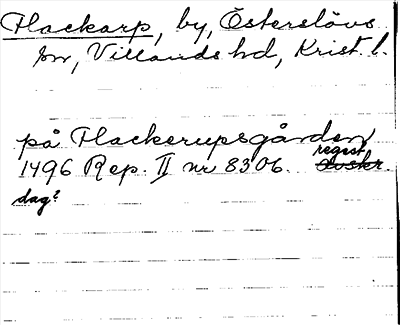 Flackarp, by, Österslövs
sn, Villands hd, Krist. l.
på Flackerupsgården
1496 Rep. II nr 8306. regest avskr.
dag?